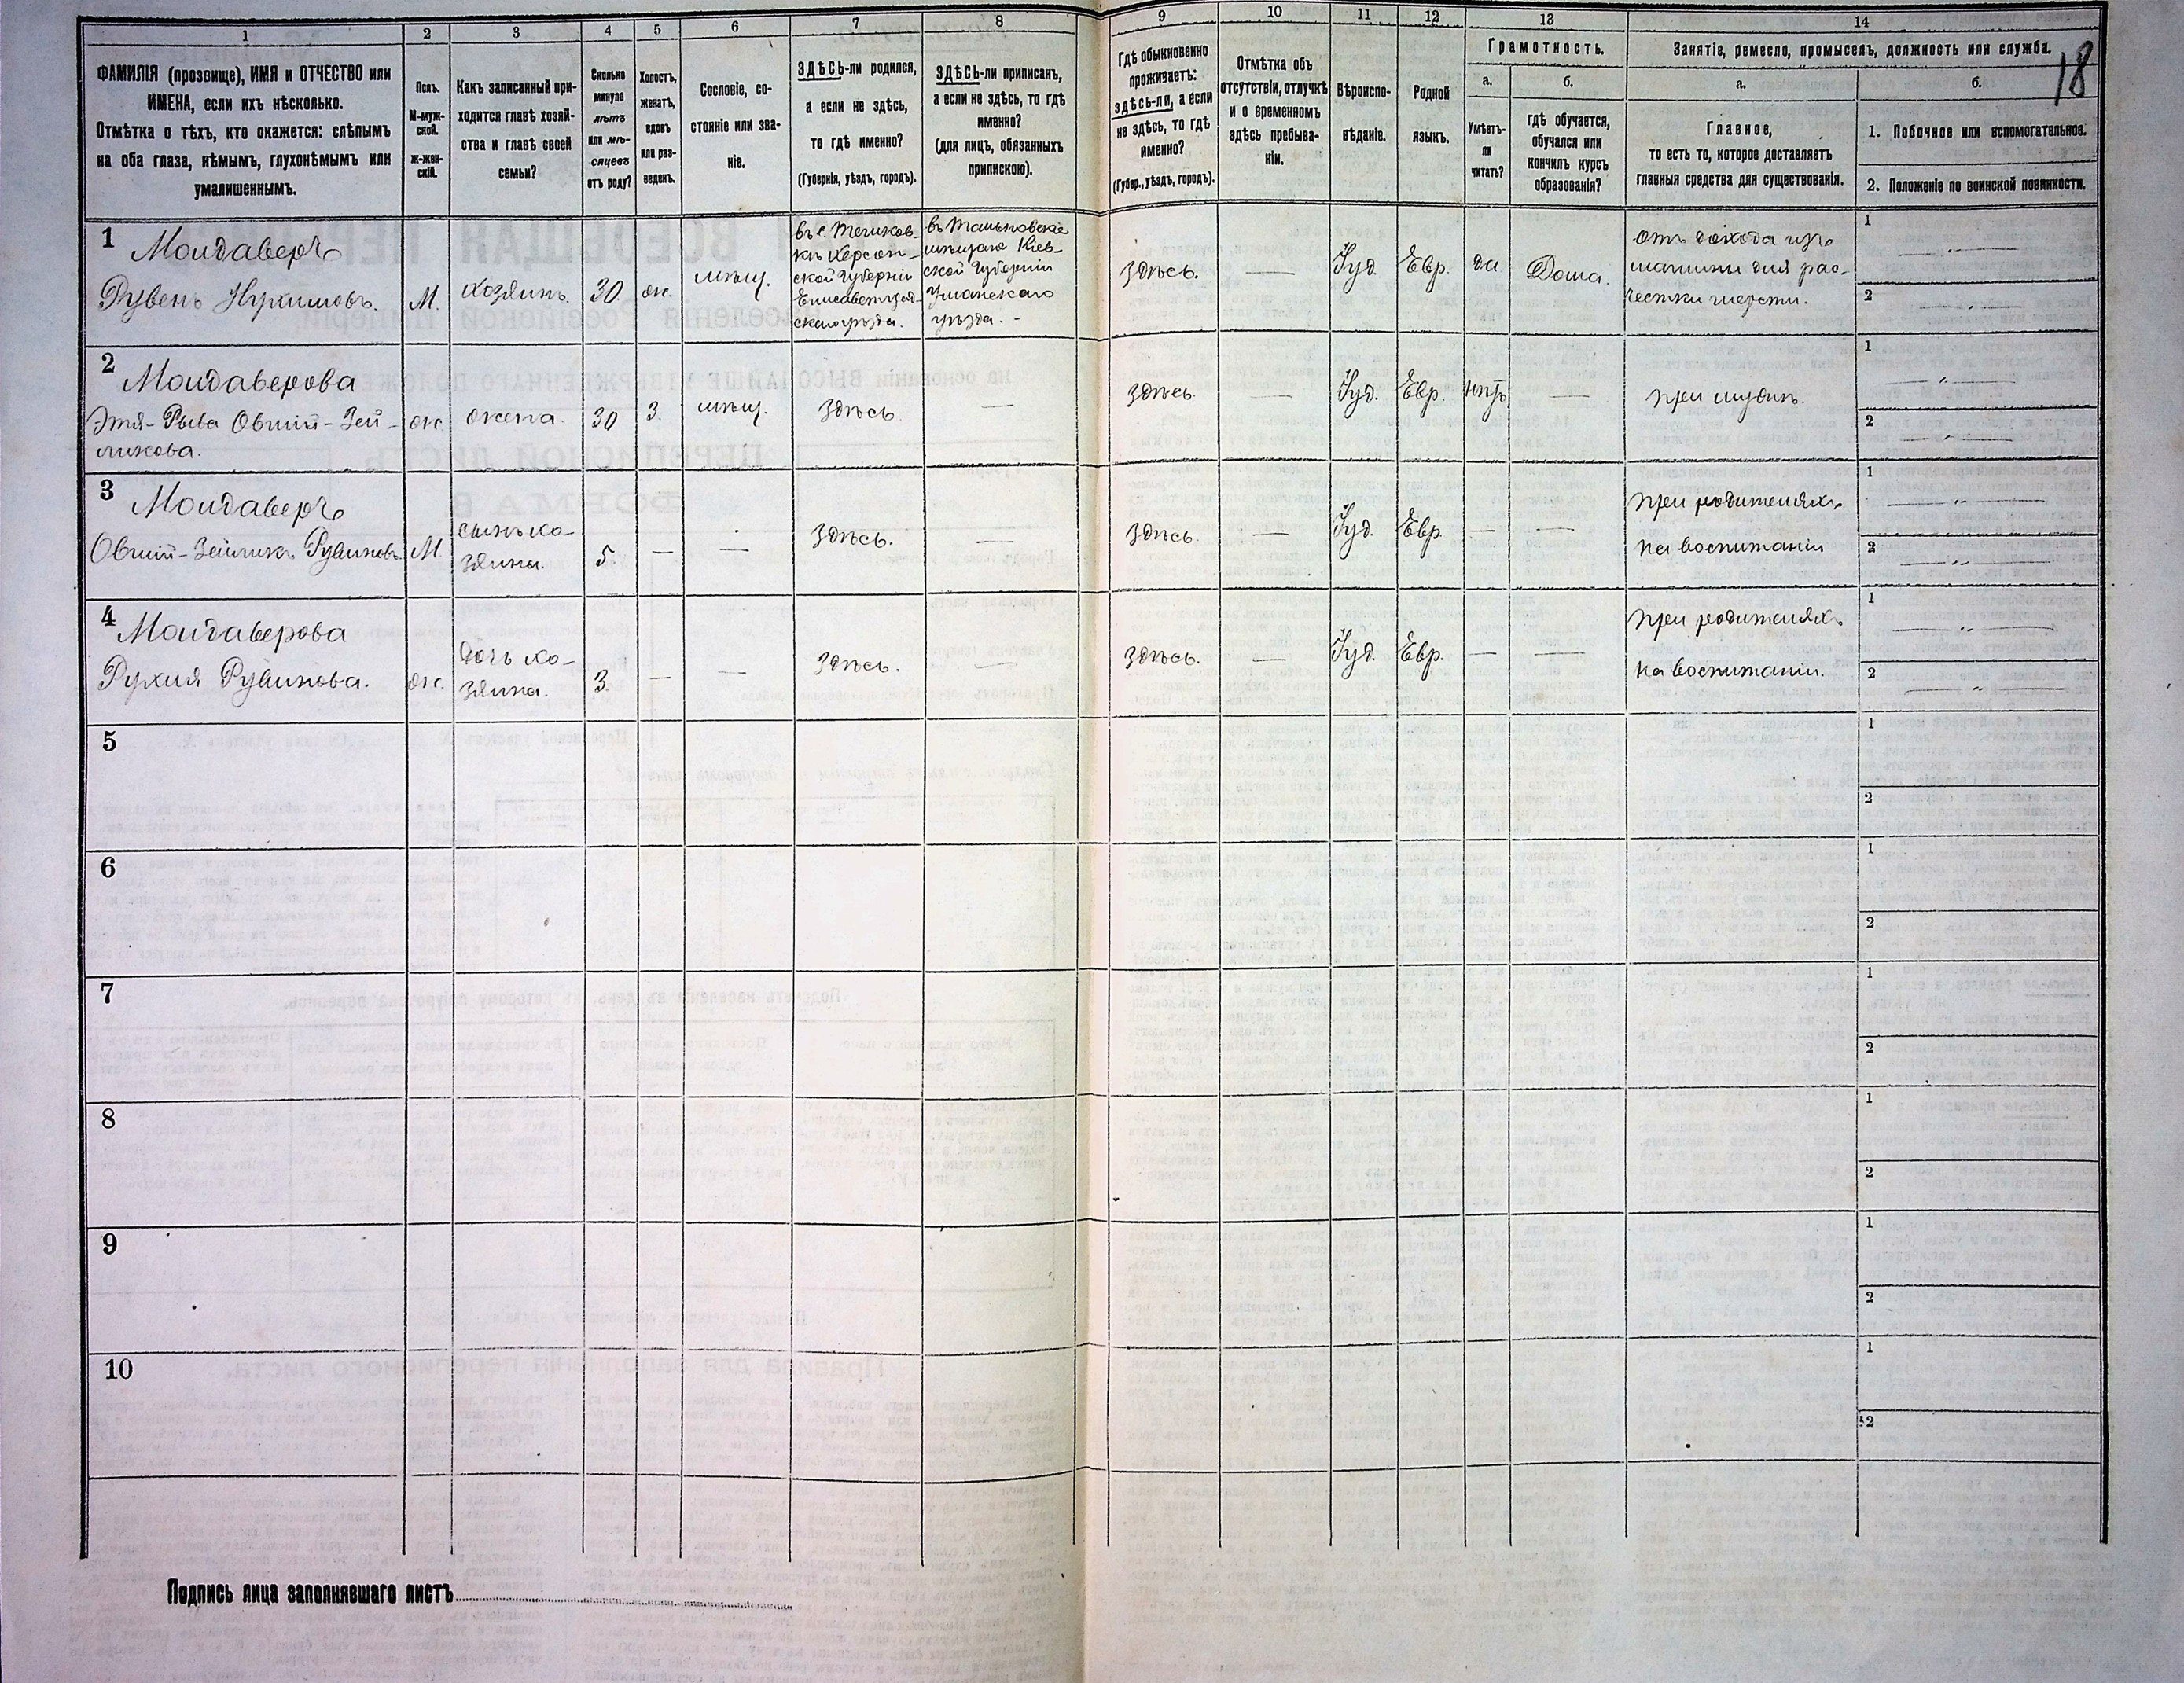 1 2 3 4 5 6 7 8 9 10 11 12 13 14
18
ФАМИЛІЯ (прозвище), ИМЯ и ОТЧЕСТВО или
ИМЕНА, если ихъ нѣсколько.
Отмѣтка о тѣхъ, кто окажется: слѣпымъ
на оба глаза, нѣмымъ, глухонѣмымъ или
умалишеннымъ.
Полъ.
М-муж-
ской.
ж-жен-
скій.
Какъ записанный при-
ходится главѣ хозяй-
ства и главѣ своей
семьи?
Сколько
минуло
лѣтъ
или мѣ-
сяцевъ
отъ роду?
Холостъ,
женатъ,
вдовъ
или раз-
веденъ.
Сословіе, со-
стояніе или зва-
ніе.
ЗДѢСЬ-ли родился,
а если не здѣсь,
то гдѣ именно?
(Губернія, уѣздъ, городъ).
ЗДѢСЬ-ли приписанъ,
а если не здѣсь, то гдѣ
именно?
(для лицъ, обязанныхъ
припискою).
Гдѣ обыкновенно
проживаетъ:
здѣсь-ли, а если
не здѣсь, то гдѣ
именно?
(Губер., уѣздъ, городъ).
Отмѣтка объ
отсутствіи, отлучкѣ
и о временномъ
здѣсь пребыва-
ніи.
Вѣроиспо-
вѣданіе.
Родной
языкъ.
Грамотность.
а.
Умѣетъ-
ли
читать?
б.
гдѣ обучается,
обучался или
кончилъ курсъ
образованія?
Занятіе, ремесло, промыселъ, должность или служба.
а.
Главное,
то есть то, которое доставляетъ
главныя средства для существованія.
б.
1. Побочное или вспомогательное.
2. Положеніе по воинской повинности.
1
Молдаверъ
Рувенъ Нухимовъ.
М.
хозяинъ.
30.
ж.
мѣщ.
въ
Херсон-
ской Губерніи
Елисаветград-
скаго уѣзда.
въ Тальновскіе
мѣщане Кіев-
ской Губерніи
Уманскаго
уѣзда. -
Здѣсь.
—
Іуд.
Евр.
да
Дома.
отъ дохода изъ
машины для рас-
чески шерсти.
1 — „ —
2 — „ —
2
Молдаверова
Этя-Рыва Овшій-Зей-
ликова.
ж.
жена.
30
З.
мѣщ.
Здѣсь.
—
Здѣсь.
—
Іуд.
Евр.
нѣтъ
—
при мужѣ.
1 — „ —
2 — „ —
3
Молдаверъ
Овшій-Зейликъ Рувиновъ
М.
сынъ хо-
зяина.
5.
—
—
Здѣсь.
—
Здѣсь.
—
Іуд.
Евр.
—
—
при родителяхъ
на воспитаніи
1 — „ —
2 — „ —
4
Молдаверова
Рухля Рувинова.
ж.
дочь хо-
зяина.
3.
—
—
Здѣсь.
—
Здѣсь.
—
Іуд.
Евр.
—
—
при родителяхъ
на воспитаніи.
1 — „ —
2 — „ —
5
1
2
6
1
2
7
1
2
8
1
2
9
1
2
10
1
2
Подпись лица заполнявшаго листъ